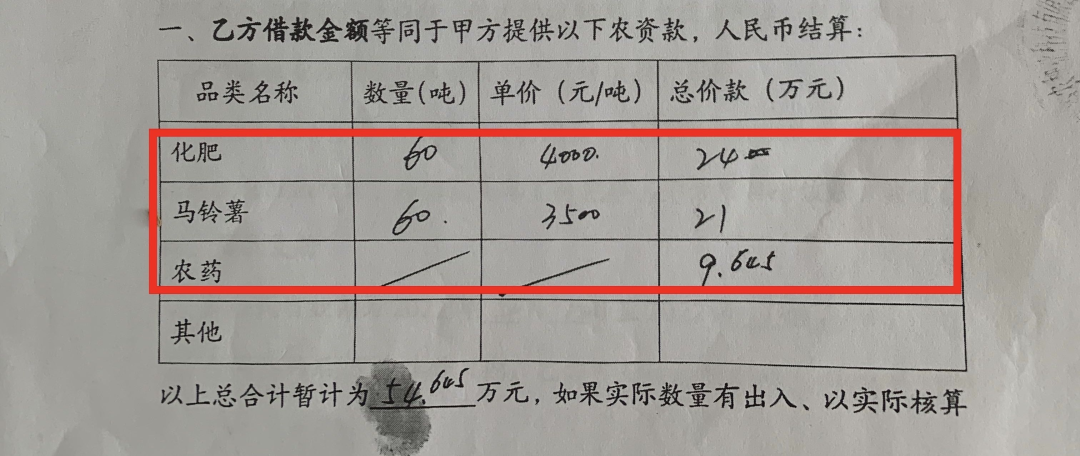 一、乙方借款金额等同于甲方提供以下农资款，人民币结算：
品类名称 数量(吨) 单价（元/吨） 总价款（万元）
化肥 60 4000. 24
马铃薯 60. 3500 21
农药 9.645
其他
以上总合计暂计为54.645万元，如果实际数量有出入、以实际核算